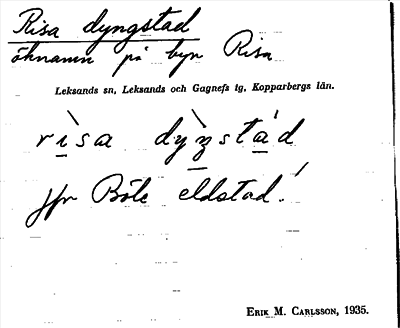 Risa dyngstad
öknamn på byn Risa
Leksands sn, Leksands och Gagnefs tg, Kopparbergs län.
rìsa dỳŋstád
jfr Böle eldstad!
ERIK M. CARLSSON, 1935.